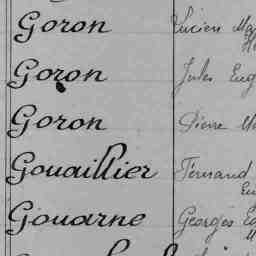 Goron Lucien
Goron Jules Eug
Goron Pierre
Gouaillier Fernand
Gouarne Georges